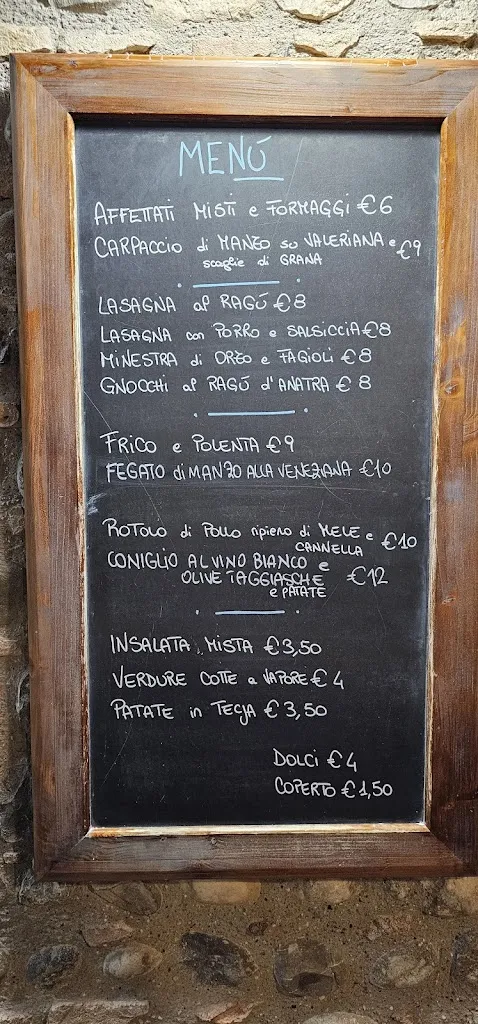 MENÚ
AFFETTATI MISTI e FORMAGGI €6
CARPACCIO di MANZO su VALERIANA e €9
scaglie di GRANA
LASAGNA al RAGÚ €8
LASAGNA con PORRO e SALSICCIA €8
MINESTRA di ORZO e FAGIOLI €8
GNOCCHI al RAGÚ d'ANATRA €8
FRICO e POLENTA €9
FEGATO di MANZO ALLA VENEZIANA €10
ROTOLO di POLLO ripieno di MELE e €10
CANNELLA
CONIGLIO AL VINO BIANCO e
OLIVE TAGGIASCHE €12
e PATATE
INSALATA MISTA €3,50
VERDURE COTTE a VAPORE €4
PATATE in TECJA €3,50
DOLCI €4
COPERTO €1,50